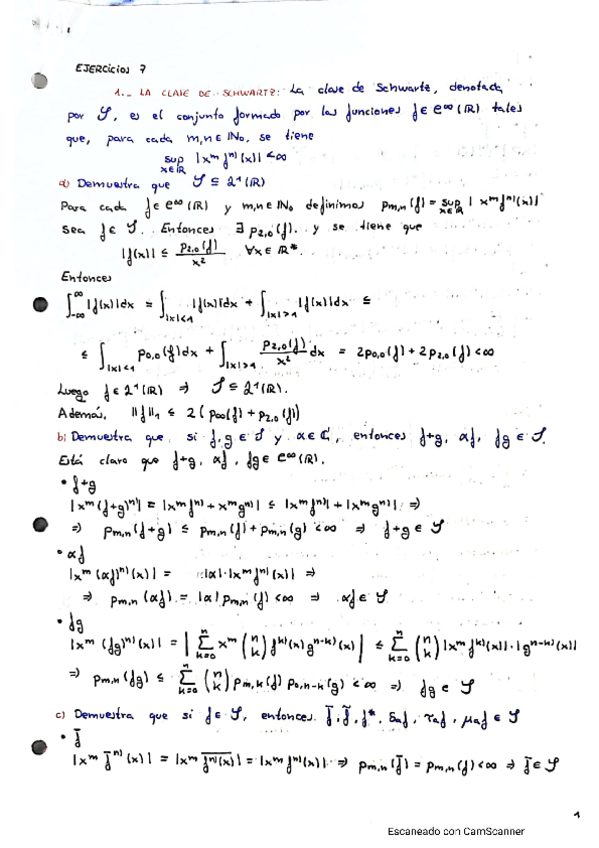 EJERCICIOS 7
1._ LA CLASE DE SCHWARTZ: La clase de Schwartz, denotada
por 𝒮, es el conjunto formado por las funciones f ∈ C^∞(ℝ) tales
que, para cada m,n ∈ ℕ₀, se tiene
sup_{x∈ℝ} |x^m f^{n)}(x)| < ∞
a) Demuestra que 𝒮 ⊆ 𝓛¹(ℝ)
Para cada f ∈ C^∞(ℝ) y m,n ∈ ℕ₀ definimos p_{m,n}(f) = sup_{x∈ℝ} |x^m f^{n)}(x)|
Sea f ∈ 𝒮. Entonces ∃ p_{2,0}(f). y se tiene que
|f(x)| ≤ p_{2,0}(f)/x² ∀x ∈ ℝ*.
Entonces
∫_{-∞}^{∞} |f(x)|dx = ∫_{|x|<1} |f(x)|dx + ∫_{|x|>1} |f(x)|dx ≤
≤ ∫_{|x|<1} p_{0,0}(f)dx + ∫_{|x|>1} p_{2,0}(f)/x² dx = 2p_{0,0}(f) + 2p_{2,0}(f) < ∞
Luego f ∈ 𝓛¹(ℝ) ⇒ 𝒮 ⊆ 𝓛¹(ℝ).
Además, ‖f‖₁ ≤ 2(p_{00}(f) + p_{2,0}(f))
b) Demuestra que, si f, g ∈ 𝒮 y α ∈ ℂ, entonces f+g, αf, fg ∈ 𝒮.
Está claro que f+g, αf, fg ∈ C^∞(ℝ).
• f+g
|x^m (f+g)^{n)}| = |x^m f^{n)} + x^m g^{n)}| ≤ |x^m f^{n)}| + |x^m g^{n)}| ⇒
⇒ p_{m,n}(f+g) ≤ p_{m,n}(f) + p_{m,n}(g) < ∞ ⇒ f+g ∈ 𝒮
• αf
|x^m (αf)^{n)}(x)| = |α|·|x^m f^{n)}(x)| ⇒
⇒ p_{m,n}(αf) = |α| p_{m,n}(f) < ∞ ⇒ αf ∈ 𝒮
• fg
|x^m (fg)^{n)}(x)| = |∑_{k=0}^{n} x^m (n k) f^{k)}(x) g^{n-k)}(x)| ≤ ∑_{k=0}^{n} (n k) |x^m f^{k)}(x)|·|g^{n-k)}(x)|
⇒ p_{m,n}(fg) ≤ ∑_{k=0}^{n} (n k) p_{m,k}(f) p_{0,n-k}(g) < ∞ ⇒ fg ∈ 𝒮
c) Demuestra que si f ∈ 𝒮, entonces f̄, f̃, f*, δ_a f, τ_a f, μ_a f ∈ 𝒮
• f̄
|x^m f̄^{n)}(x)| = |x^m \overline{f^{n)}(x)}| = |x^m f^{n)}(x)| ⇒ p_{m,n}(f̄) = p_{m,n}(f) < ∞ ⇒ f̄ ∈ 𝒮
1
Escaneado con CamScanner